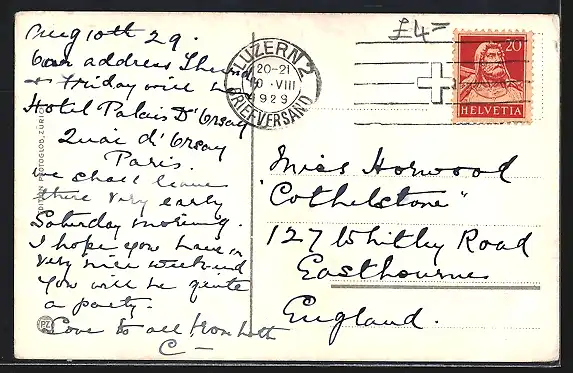 Aug 10th 29.
Our address Thursday
or Friday will be
Hotel Palais D'Orsay
Quai d'Orsay
Paris.
we shall leave
there very early
Saturday morning.
I hope you have a
very nice weekend
you will be quite
a party.
Love to all from both
C—
£4=
LUZERN 2
20-21
10 VIII
1929
BRIEFVERSAND
20
HELVETIA
Miss Horwood
"Cothelstone"
127 Whitley Road
Eastbourne
England.